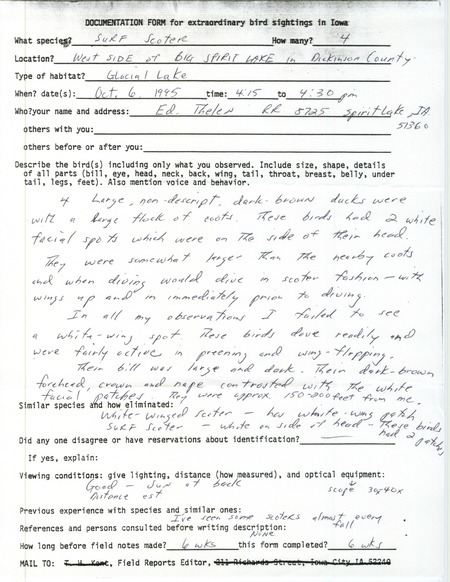 DOCUMENTATION FORM for extraordinary bird sightings in Iowa
What species? Surf Scoter How many? 4
Location? West side of Big Spirit Lake in Dickinson County
Type of habitat? Glacial Lake
When? date(s): Oct. 6, 1995 time: 4:15 to 4:30 pm
Who?your name and address: Ed. Thelen RR 8725 Spirit Lake, IA
51360
others with you:
others before or after you:
Describe the bird(s) including only what you observed. Include size, shape, details
of all parts (bill, eye, head, neck, back, wing, tail, throat, breast, belly, under
tail, legs, feet). Also mention voice and behavior.
4 Large, non-descript, dark-brown ducks were
with a large flock of coots. These birds had 2 white
facial spots which were on the side of their head.
They were somewhat larger than the nearby coots
and when diving would dive in scoter fashion - with
wings up and in immediately prior to diving.
In all my observations I failed to see
a white-wing spot. These birds dove readily and
were fairly active in preening and wing-flapping.
Their bill was large and dark. Their dark-brown
forehead, crown and nape contrasted with the white
facial patches. They were approx 150-200 feet from me.
Similar species and how eliminated:
White-winged Scoter - has white-wing patch
Surf Scoter - white on side of head - These birds
had 2 patches
Did any one disagree or have reservations about identification?
If yes, explain:
Viewing conditions: give lighting, distance (how measured), and optical equipment:
Good - Sun at back
Distance est
scope 30-40x
Previous experience with species and similar ones:
I've seen some scoters almost every
fall
References and persons consulted before writing description:
None
How long before field notes made? 6 wks this form completed? 6 wks
MAIL TO: T. H. Kent, Field Reports Editor, 211 Richards Street, Iowa City IA 52240